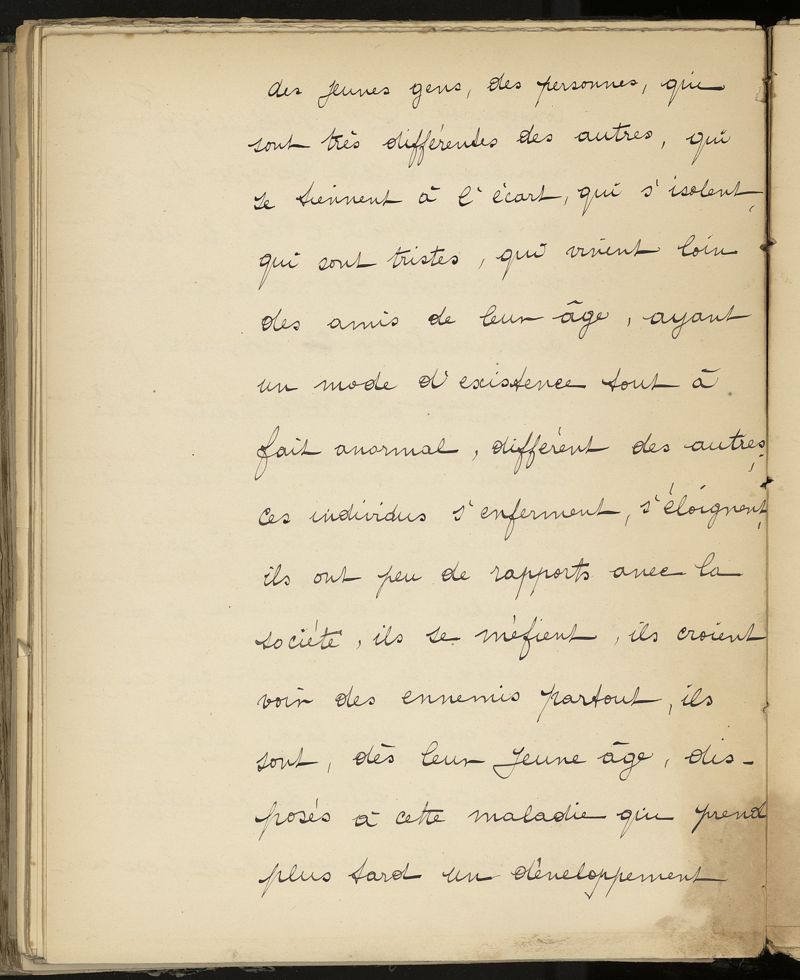 des jeunes gens, des personnes, qui
sont très différentes des autres, qui
se tiennent à l'écart, qui s'isolent,
qui sont tristes, qui vivent loin
des amis de leur âge, ayant
un mode d'existence tout à
fait anormal, différent des autres;
ces individus s'enferment, s'éloignent,
ils ont peu de rapports avec la
société, ils se méfient, ils croient
voir des ennemis partout, ils
sont, dès leur jeune âge, dis-
posés à cette maladie qui prend
plus tard un développement